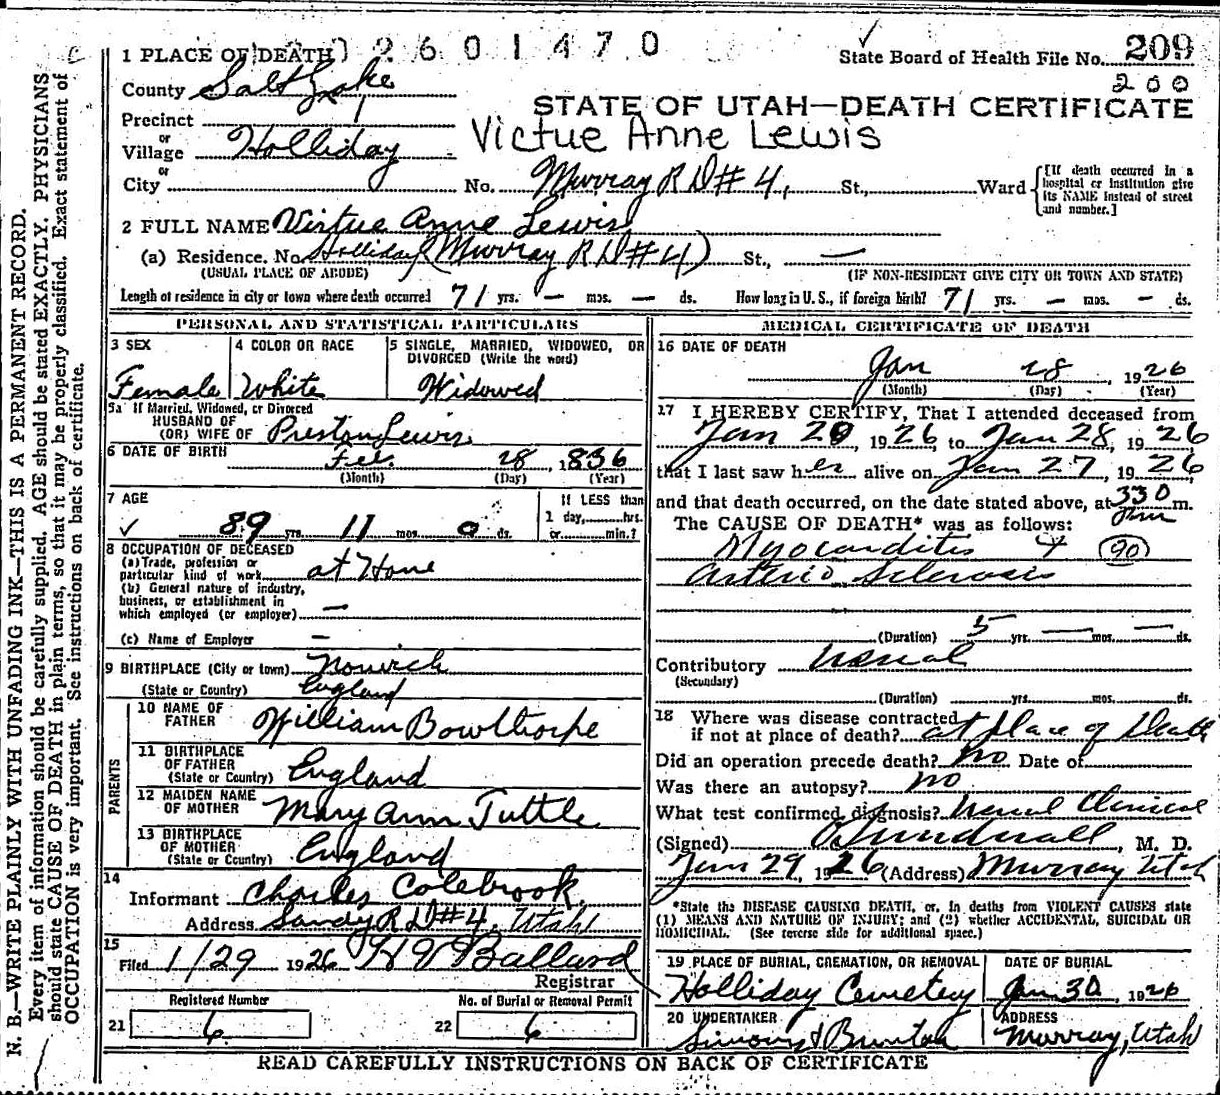 1 PLACE OF DEATH 2 6 0 1 4 7 0
State Board of Health File No. 209
200
County Salt Lake
STATE OF UTAH—DEATH CERTIFICATE
Precinct 1
Victue Anne Lewis
or
Village Holliday
or
City No. Murray R D # 4, St., Ward
[If death occurred in a hospital or institution give its NAME instead of street and number.]
2 FULL NAME Virtue Anne Lewis
(a) Residence. No. Holliday (Murray R D # 4) St., —
(USUAL PLACE OF ABODE) (IF NON-RESIDENT GIVE CITY OR TOWN AND STATE)
Length of residence in city or town where death occurred 71 yrs. — mos. — ds. How long in U.S., if foreign birth? 71 yrs. — mos. — ds.
PERSONAL AND STATISTICAL PARTICULARS
3 SEX 4 COLOR OR RACE 5 SINGLE, MARRIED, WIDOWED, OR DIVORCED (Write the word)
Female White Widowed
5a If Married, Widowed, or Divorced
HUSBAND OF
(OR) WIFE OF Preston Lewis
6 DATE OF BIRTH Feb. 28, 1836
(Month) (Day) (Year)
7 AGE If LESS than
1 day, hrs.
✓ 89 yrs. 11 mos. 0 ds. or min.?
8 OCCUPATION OF DECEASED
(a) Trade, profession or
particular kind of work at Home
(b) General nature of industry,
business, or establishment in
which employed (or employer) —
(c) Name of Employer —
9 BIRTHPLACE (City or town) Norwich
(State or Country) England
PARENTS
10 NAME OF
FATHER William Bowlthorpe
11 BIRTHPLACE
OF FATHER
(State or Country) England
12 MAIDEN NAME
OF MOTHER Mary Ann Tuttle
13 BIRTHPLACE
OF MOTHER
(State or Country) England
14
Informant Charles Colebrook.
Address Sandy R D # 4, Utah
15
Filed 1/29 1926 H V Ballard
Registrar
Registered Number No. of Burial or Removal Permit
21 6 22 6
MEDICAL CERTIFICATE OF DEATH
16 DATE OF DEATH
Jan 28, 1926
(Month) (Day) (Year)
17 I HEREBY CERTIFY, That I attended deceased from
Jan 20, 1926 to Jan 28, 1926
that I last saw her alive on Jan 27, 1926
and that death occurred, on the date stated above, at 330 m.
The CAUSE OF DEATH* was as follows:
Myocarditis + 90
Arterio Sclerosis
(Duration) 5 yrs. — mos. — ds.
Contributory
(Secondary)
(Duration) yrs. mos. ds.
18 Where was disease contracted
if not at place of death? at place of Death
Did an operation precede death? no Date of
Was there an autopsy? no
What test confirmed diagnosis? Usual Clinical
(Signed) , M. D.
Jan 29, 1926 (Address) Murray Utah
*State the DISEASE CAUSING DEATH, or, in deaths from VIOLENT CAUSES state
(1) MEANS AND NATURE OF INJURY; and (2) whether ACCIDENTAL, SUICIDAL OR
HOMICIDAL. (See reverse side for additional space.)
19 PLACE OF BURIAL, CREMATION, OR REMOVAL DATE OF BURIAL
Holliday Cemetery Jan 30, 1926
20 UNDERTAKER ADDRESS
Murray, Utah
READ CAREFULLY INSTRUCTIONS ON BACK OF CERTIFICATE
N. B.—WRITE PLAINLY WITH UNFADING INK—THIS IS A PERMANENT RECORD.
Every item of information should be carefully supplied. AGE should be stated EXACTLY. PHYSICIANS
should state CAUSE OF DEATH in plain terms, so that it may be properly classified. Exact statement of
OCCUPATION is very important. See instructions on back of certificate.